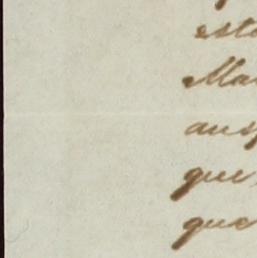 esta
Mar
ausp
que
que